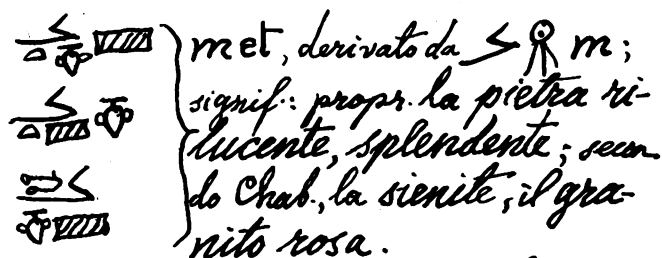 met, derivato da m;
signif.: propr. la pietra ri-
lucente, splendente; secon
do Chab., la sienite, il gra-
nito rosa.